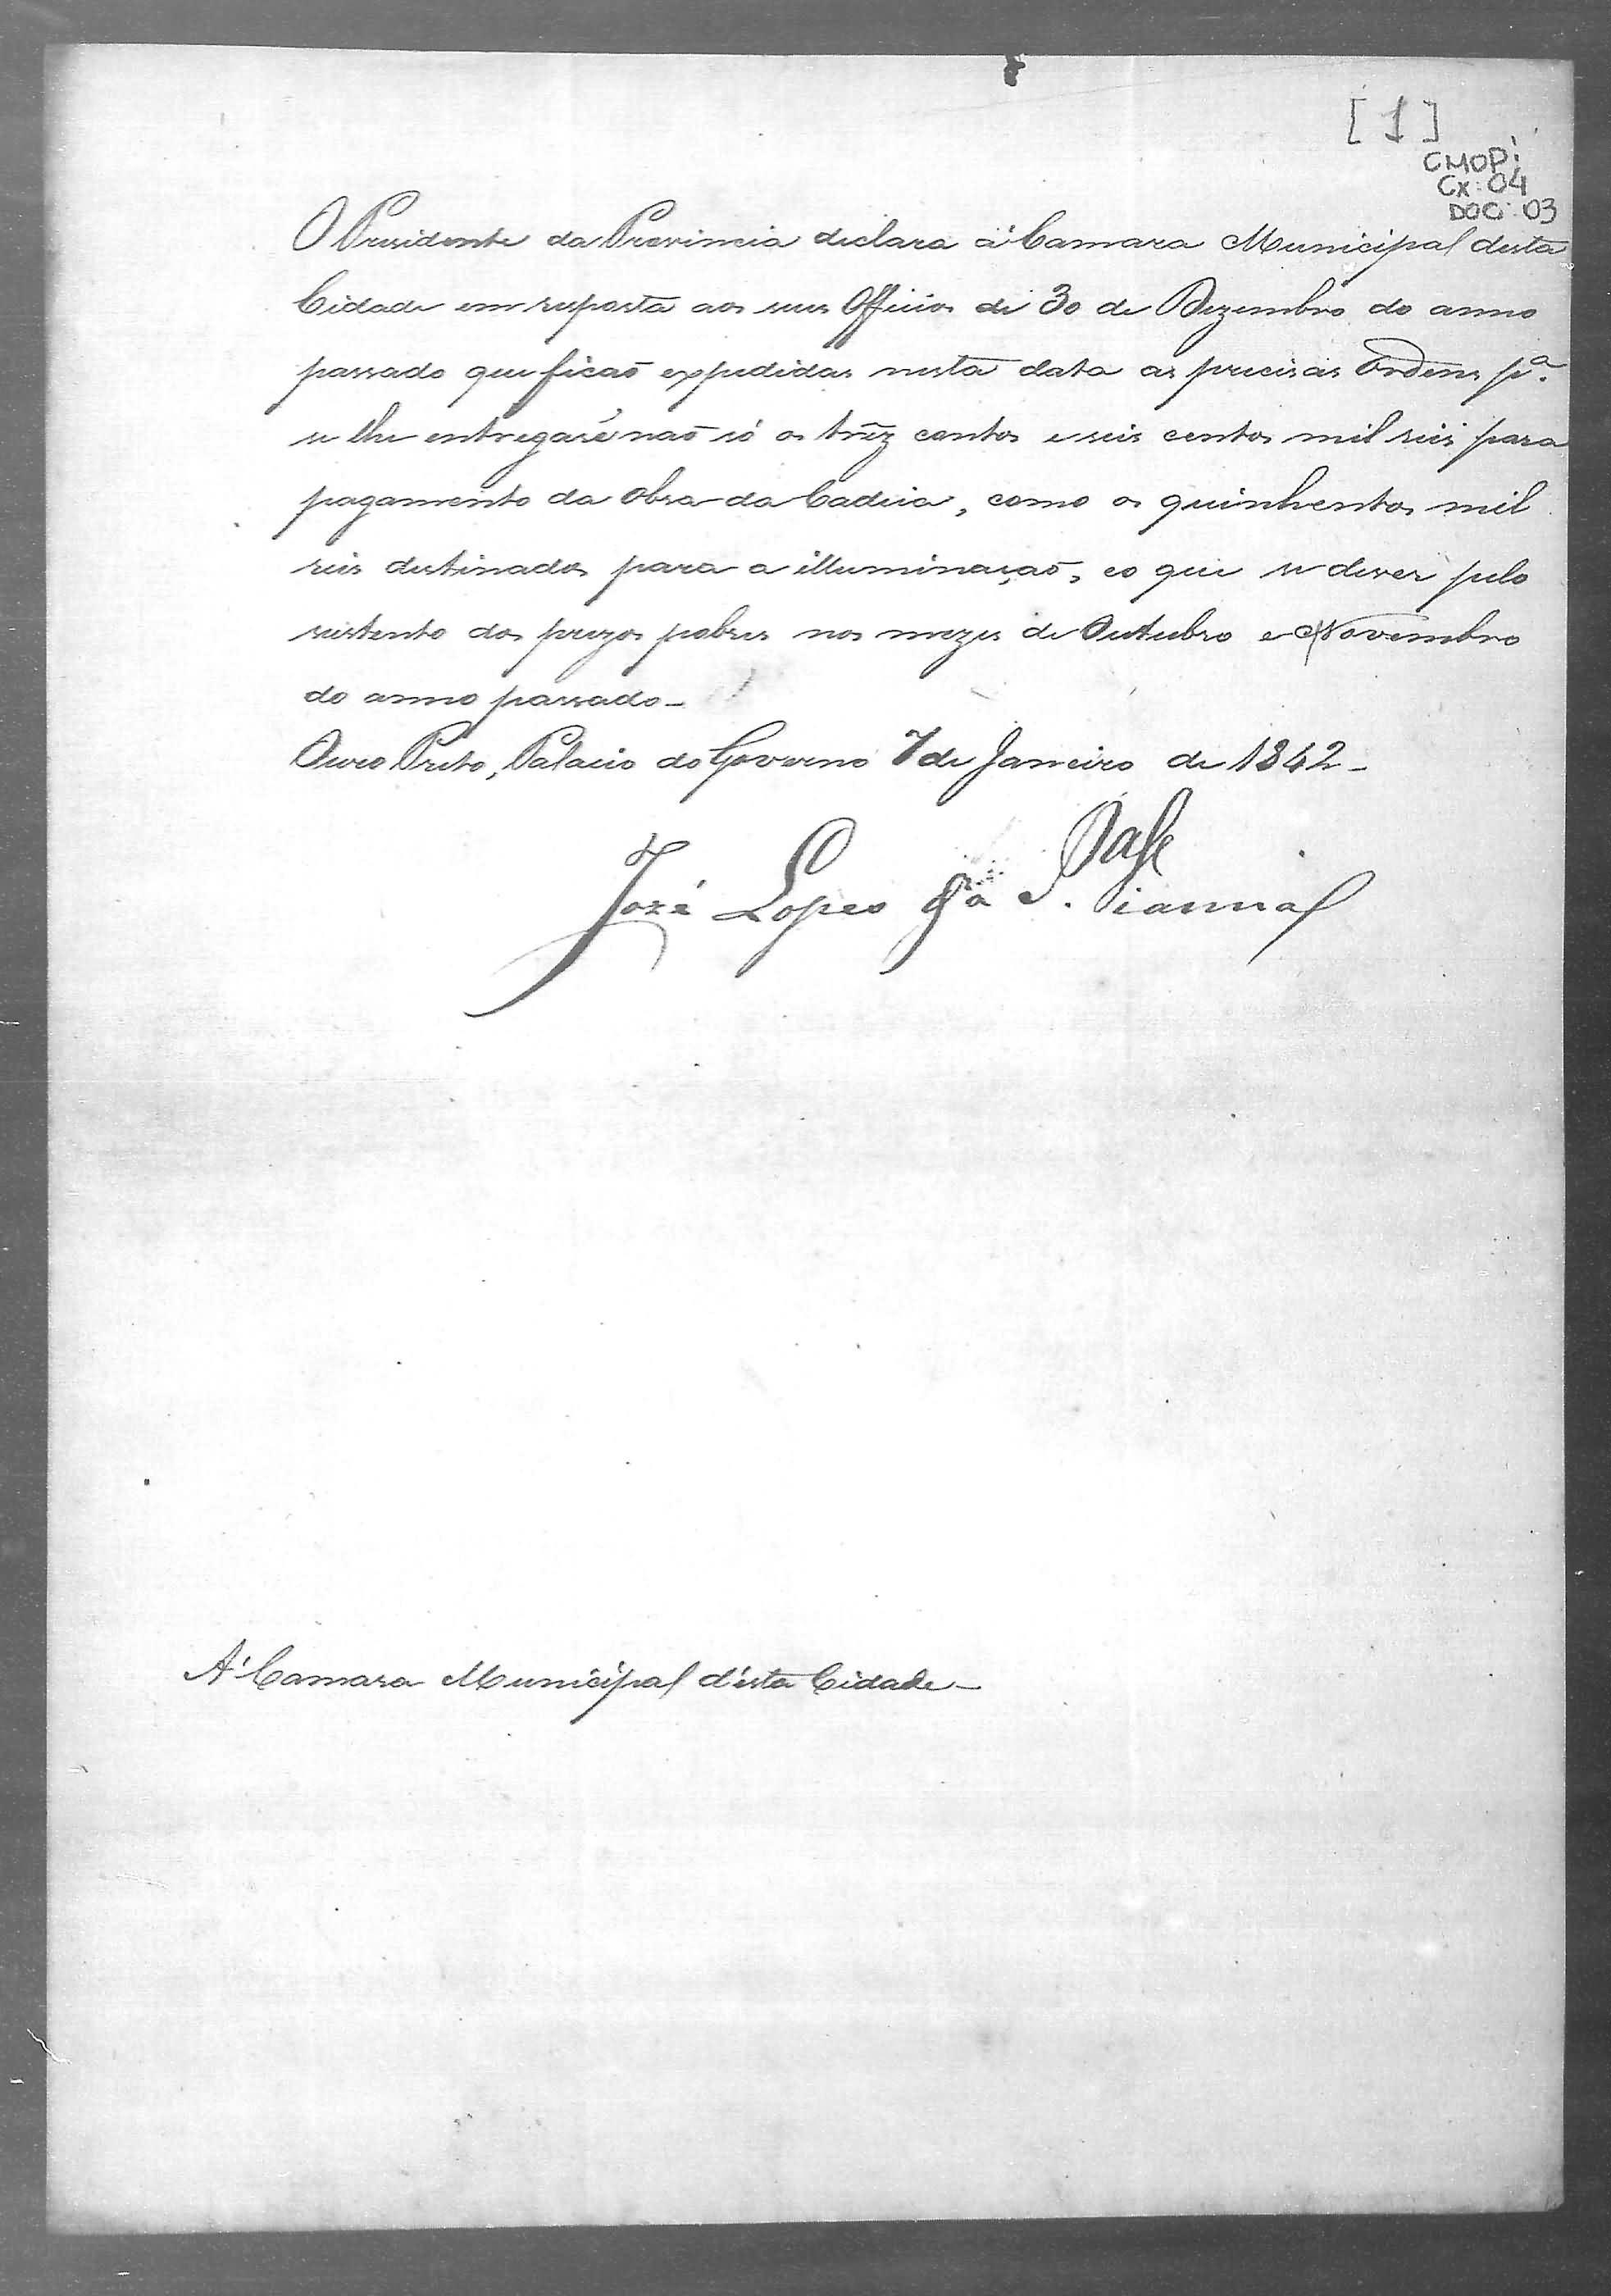 [1]
CMOP:
Cx: 04
DOC: 03
O Presidente da Provincia declara á Camara Municipal desta
Cidade em resposta aos seus Officios de 30 de Dezembro do anno
passado que ficaõ expedidas nesta data as precisas Ordens pª.
se lhe entregarẽ naõ só os trêz contos e seis centos mil reis para
pagamento da obra da Cadeia, como os quinhentos mil
reis destinados para a illuminaçaõ, e o que se dever pelo
sustento dos prezos pobres nos mezes de Outubro e Novembro
do anno passado_
Ouro Preto, Palacio do Governo 7 de Janeiro de 1842_
José Lopes da S. Vianna
A' Camara Municipal d'esta Cidade_